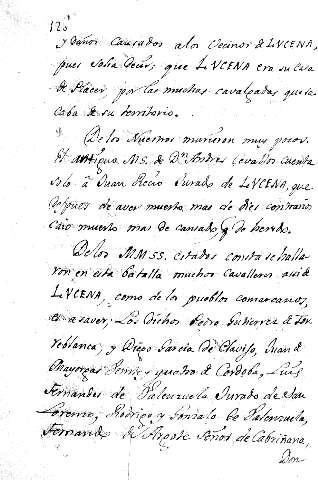 120
y daños causados a los Vecinos de LUCENA,
pues solia decir, que LUCENA era su casa
de Placer, por las muchas cavalgadas que sa
caba de su territorio.
De los Nuestros murieron muy pocos.
El antiguo MS. de Dn. Andres Cevallos cuenta
solo â Juan Recio Jurado de LUCENA, que
despues de aver muerto mas de dies contrarios
caio muerto mas de cansado, q de herido.
De los MMSS. citados consta se halla
ron en esta batalla muchos cavalleros asi de
LUCENA, como de los pueblos comarcanos,
es a saver; Los dichos Pedro Gutierrez de Tor
reblanca; y Diego Garcia de Clavijo, Juan de
Mayorgas Veinte y quatro de Cordoba, Luis
Fernandes de Valenzuela Jurado de San
Lorenzo, Rodrigo y Gonzalo de Valenzuela,
Fernando de Argote Señor de Cabriñana,
Don